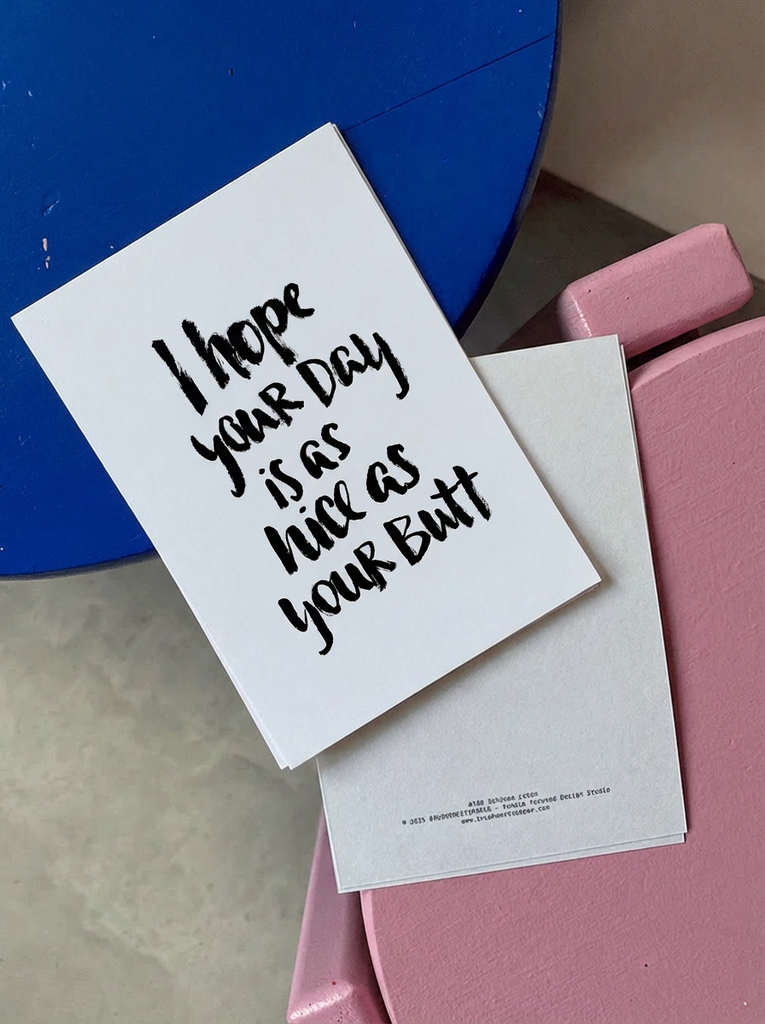 I hope
your Day
is as
nice as
your Butt
Design Studio